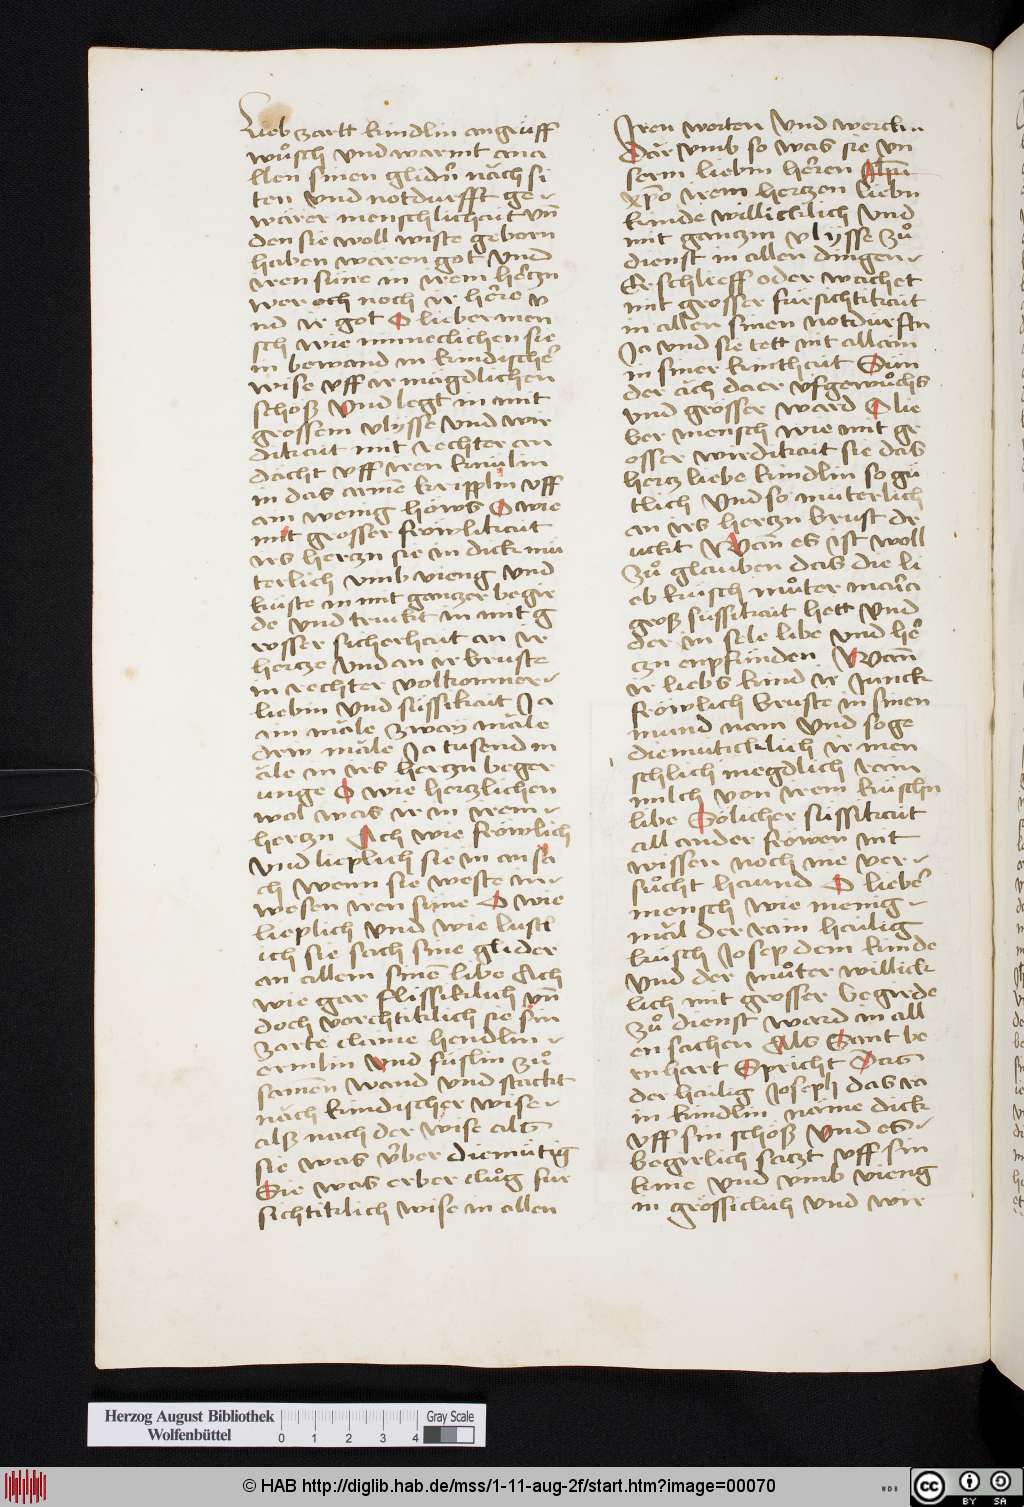 Lieb zartt kindlin angrúff
wuͦsch vnd warmt ana
llen sinen glidn̄ näch si
ten vnd notdurfft ge-
wärer menschlichait vn̄
den sie woll wiste geborn
haben waren got vnd
iren süne in irem hertzn
wer och noch ir herre v
nd ir got O lieber men
sch wie inneclichen sie
in bewand in kindischer
wise vff ir mägdlichen
schosz Vnd legt in mit
grossem vlysse vnd wir
dikait mit rechter an
dächt vff iren kniulin
in das armē kripplin vff
ain wenig höws O wie
mit grosser fröwlikait
irs hertzn sie in dick mü
terlich vmb vieng vnd
küste in mit gantzer begir
de vnd truckt in mit g
rosser sicherhait an ir
hertze vnd an ir bruste
in rechter volkomner-
liebin vnd süssikait Ja
ain mäle zway mäle
drw mäle Ja tusend m
äle in irs hertzn beger
unge O wie hertzlichen
wol was ir in irem-
hertzn Ach wie fröwlich
vnd lieplich sie in an sa
ch wenn sie weste in-
wesen iren syne O wie
lieplich vnd wie lustl
ich sie sach sine glider
an allem sinē libe Ach
wie gar flissiklich vn̄
doch vorchtiklich sie sin
zarte claine hendlin-
ermlin vnd füslin zuͦ
samen wand vnd stackt
näch kindischer wise-
alsz nach der wise als
sie was vber diemütig
Sie was erber cluͦg für
sichtiklich wise in allen
Iren worten Vnd wercken
Dar vmb so was sie vn
serm liebin herren Jhū
xp̄o irem hertzen liebn
kinde willicklich vnd
mit gantzm vlysse zuͦ
dienst in allen dingen-
Er schlieff oder wachet
mit grosser fürsichtikait
in allen sinen notdurftn
Ja vnd sie tett nit allain
in siner kinthait Sün
der äch da er vfgewuͦchs
vnd grösser ward O lie
ber mensch wie mit gr
osser wirdikait sie das
hertz liebe kindlin so gü
tlich Vnd so müterlich
an irs hertzn brust dr
uckt Wān es ist woll
zuͦ glauben das die li
eb küsch muͦter maria
grosz süssikait hett vnd
der in sele libe vnd he
tzn enpfünden Wān
ir liebs kind ir Junck
fröwlich bruste in sinen
mund nam Vnd so ge
diemüticklich ir men
schlich megdlich rain
milch von irem küschn
libe Sölicher süssikait
all ander fröwen nit
wissen noch nie ver-
suͦcht haund O lieber
mensch wie menig-
mäl der rain hailig
küsch Josep dem kinde
vnd der muͦter willick
lich mit grosser begirde
zuͦ dienst ward in all
en sachen Als Sant be
rnhart Spricht Das
der hailig Joseph das ra
in kindlin näme dick
vff sin schösz Vnd es-
begirlich satzt vff sin
knie vnd vmb vieng
in grössiclich vnd wir
Herzog August Bibliothek
Wolfenbüttel
0 1 2 3 4
Gray Scale
© HAB http://diglib.hab.de/mss/1-11-aug-2f/start.htm?image=00070
WDB
cc BY SA